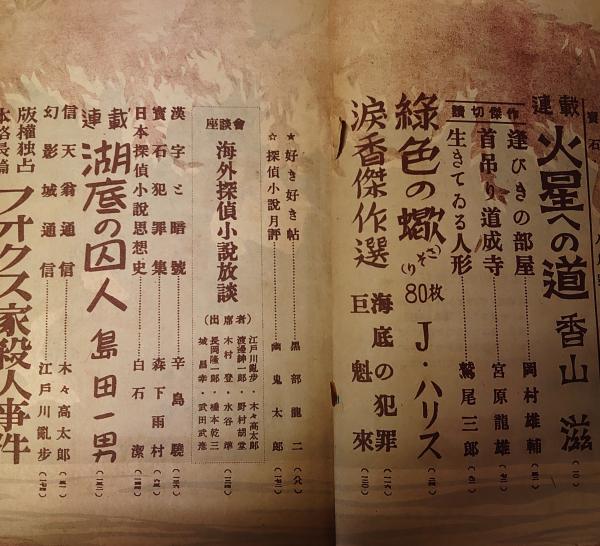 寶石
連載
火星への道 香山滋
逢ひきの部屋 岡村雄輔
讀切傑作
首吊り道成寺 宮原龍雄
生きてゐる人形 鷲尾三郎
綠色の蠍(さそり) 80枚 J・ハリス
淚香傑作選
海底の犯罪
巨魁來
★好き好き帖 黑部龍二
☆探偵小說月評 幽鬼太郎
座談會
海外探偵小說放談
(出席者)
江戶川亂步・木々高太郎
渡邊紳一郎・野村胡堂
木村登・水谷準
長岡隆一郎・橋本乾三
城昌幸・武田武彥
漢字と暗號 辛島驍
寶石犯罪集 森下雨村
日本探偵小說思想史 白石潔
連載
湖底の囚人 島田一男
信天翁通信 木々高太郎
幻影城通信 江戶川亂步
版權独占
本格長篇
フオクス家殺人事件